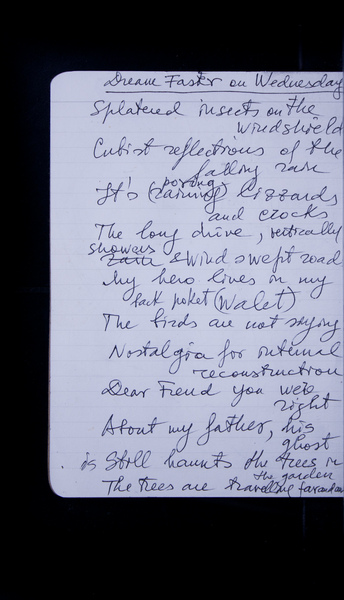 Dreame Faster on Wednesday
Splatered insects on the
windshield
Cubist reflections of the
falling rain
It's (raining) poring lizzards
and crocks
The long drive, vertically
showers
Rain & wind swept road
My hero lives in my
back poket (Walet)
The birds are not saying
Nostalgia for internal
reconstruction
Dear Friend you were
right
About my father, his
ghost
is Still haunts the trees in
the garden
The trees are travelling far and